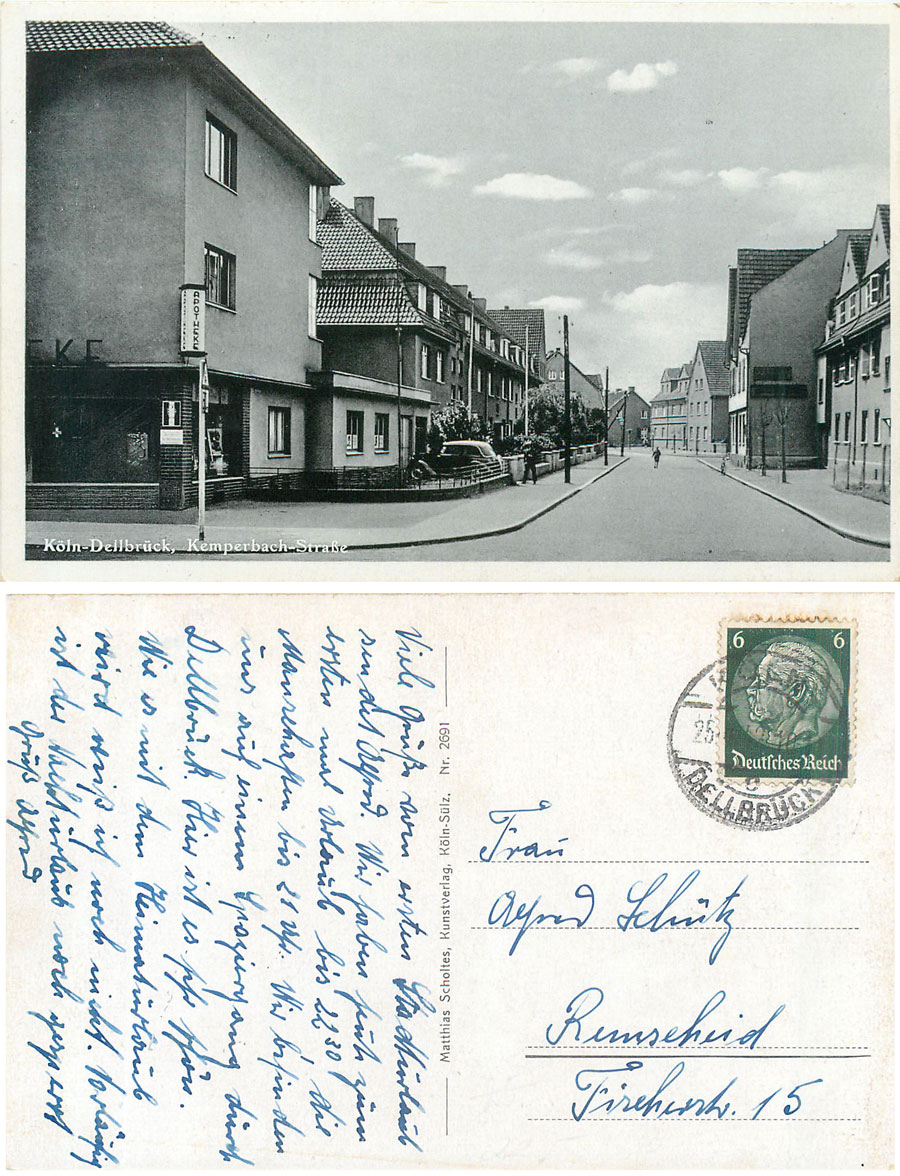 EKE
APOTHEKE
Köln-Dellbrück, Kemperbach-Straße
Viele Grüße vom ersten Stadturlaub
sendet Alfred. Wir haben heute zum
ersten mal Urlaub bis 22 30 die
Manschaften bis 21 Uhr. Wir befinden
uns auf einem Spaziergang durch
Dellbrück. Hier ist es sehr schön.
Wie es mit dem Heimaturlaub
wird weiß ich noch nicht. Vorläufig
ist der Nachturlaub noch gesperrt
Gruß Alfred
Matthias Scholtes, Kunstverlag, Köln-Sülz. Nr. 2691
6 6
Deutsches Reich
25
DELLBRÜCK
Frau
Alfred Schütz
Remscheid
Fischerstr. 15